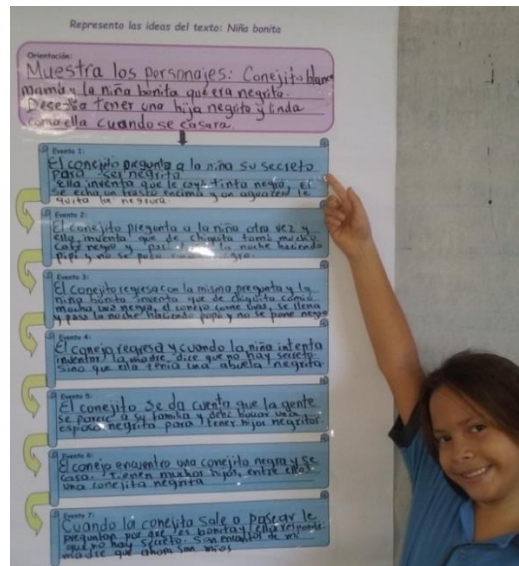 Representa las ideas del texto: Niña bonita
Orientación:
Muestra los personajes: Conejito blanco
mamá y la niña bonita que era negrita.
Deseaba tener una hija negrita y linda
como ella cuando se casara.
Evento 1:
El conejito pregunta a la niña su secreto
para ser negrita
Ella inventa que le cayó tinta negra, él
se echa un trasto encima y un aguacero le
quita la negrura.
Evento 2:
El conejito pregunta a la niña otra vez y
ella inventa que de chiquita tomó mucho
café negro y pasó la noche haciendo
pipí y no se puso
Evento 3:
El conejito regresa con la misma pregunta y la
niña bonita inventa que de chiquita comió
mucha uva negra, el conejo come uvas, se llena
y pasa la noche haciendo popú y no se pone negro
Evento 4:
El conejo regresa y cuando la niña intenta
inventar, la madre dice que no hay secreto
sino que ella tenía una abuela negrita.
Evento 5:
El conejito se da cuenta que la gente
se parece a su familia y debe buscar una
esposa negrita para tener hijos negritos
Evento 6:
El conejo encuentra una conejita negra y se
casa. Tienen muchos hijos, entre ellos
una conejita negrita
Evento 7:
Cuando la conejita sale a pasear le
preguntan por qué es bonita y ella responde
que no hay secreto. Son encantos de mi
madre que ahora son míos